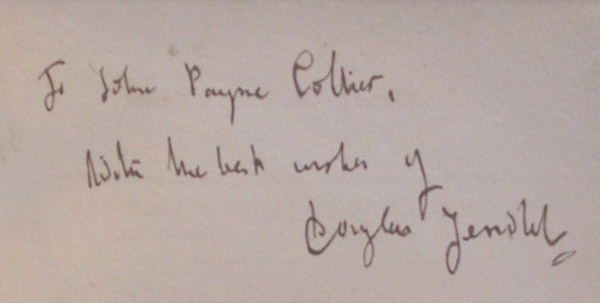 To John Payne Collier,
With the best wishes of
Douglas Jerrold